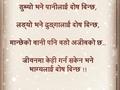 डुब्यो भने पानीलाई दोष दिन्छ,
लड्यो भने ढुङ्गालाई दोष दिन्छ,
मान्छेको बानी पनि यस्तै अजीवको छ..
जीवनमा केही गर्न सकेन भने
भाग्यलाई दोष दिन्छ ।।